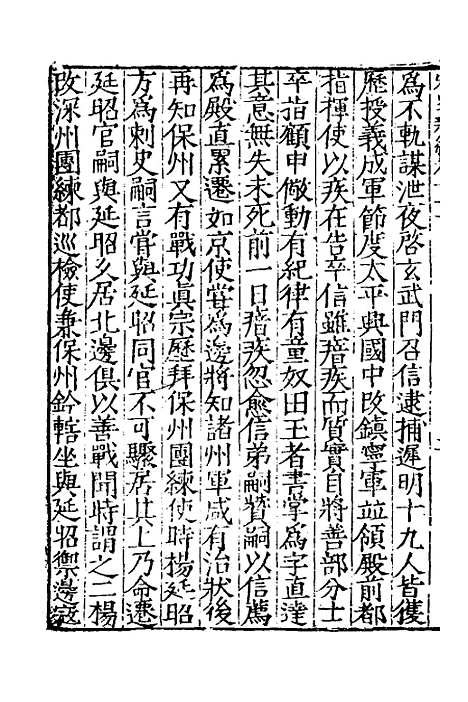 爲不軌謀泄夜啓玄武門召信逮捕遲明十九人皆獲
歷授義成軍節度太平興國中改鎮寧軍並領殿前都
指揮使以疾在告卒信雖瘖疾而質實自將善部分士
卒指顧申儆動有紀律有童奴田王者書字爲字直達
其意無失未死前一日瘖疾忽愈信弟嗣贊嗣以信薦
爲殿直累遷如京使嘗爲邊將知諸州軍咸有治狀後
再知保州又有戰功眞宗歷拜保州團練使時楊延昭
方爲刺史嗣言嘗與延昭同官不可驟居其上乃命遷
延昭官嗣與延昭久居北邊俱以善戰聞時謂之二楊
改深州團練都巡檢使兼保州鈐轄坐與延昭禦邊寇